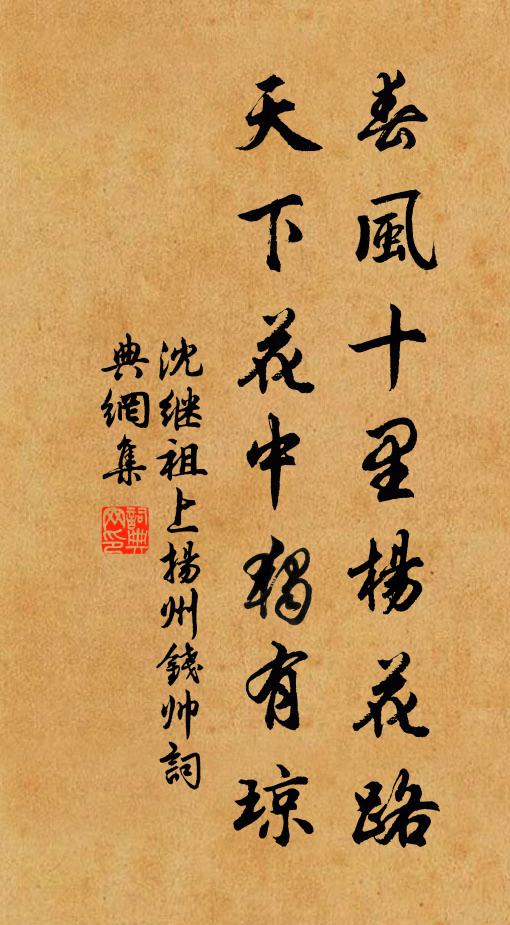 春風十里楊花路
天下花中獨有瓊
沈继祖上揚州錢帅詞
典網集
詞典
网印